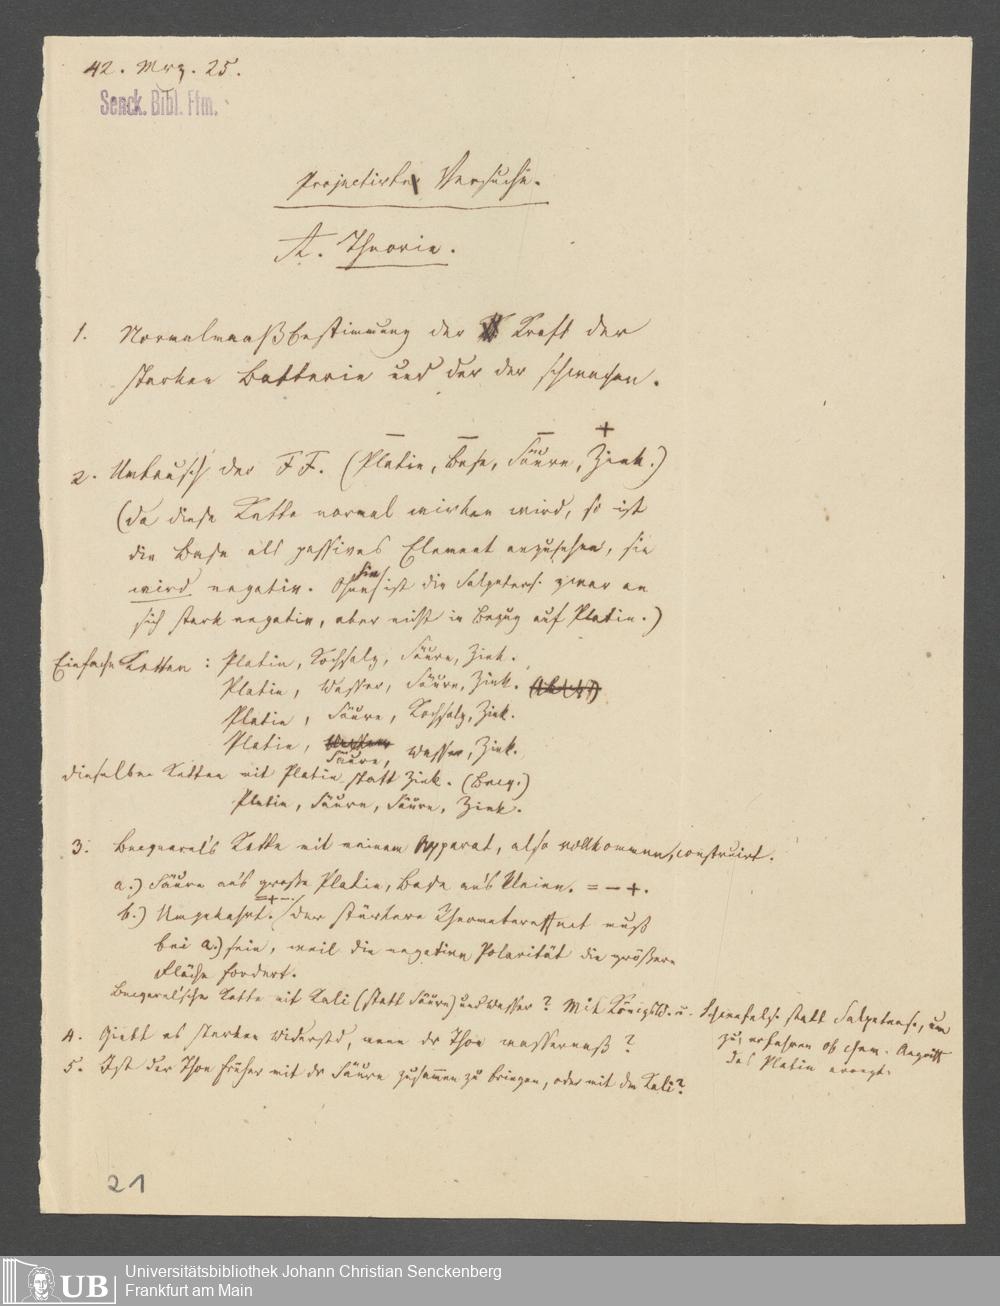 42. Mrz. 25.
Senck. Bibl. Ffm.
Projectirte Versuche.
A. Theorie.
1. Normalmaaßbestimmung der Kraft der
starken Batterie und der der schwachen.
2. Umtausch der FF. (Platin, Base, Säure, Zink.)
− − − +
(da diese Kette normal wirken wird, so ist
die Base als passives Element anzusehen, sie
wird negativ. Ohne sie ist die Salpeters. zwar an
sich stark negativ, aber nicht in Bezug auf Platin.)
Einfache Ketten: Platin, Kochsalz, Säure, Zink.
Platin, Wasser, Säure, Zink.
Platin, Säure, Kochsalz, Zink.
Platin, Säure, Wasser, Zink.
dieselben Ketten mit Platin statt Zink. (Becq.)
Platin, Säure, Säure, Zink.
3. Becquerel's Kette mit meinem Apparat, also vollkommen construirt.
a.) Säure ans große Platin, Base ans kleine. = − +.
= + −.
b.) Umgekehrt. (der stärkere Thermo muß
bei a.) sein, weil die negative Polarität die größere
Fläche fordert.
Becquerel'sche Kette mit Kali (statt Säure) und Wasser? Mit Königsw. u. Schwefels. statt Salpeters., um
zu erfahren ob chem. Angriff
das Platin erregt.
4. Giebt es starken Widerstd, wenn dr Thon wassernaß?
5. Ist der Thon früher mit dr Säure zusammen zu bringen, oder mit dem Kali?
21
UB
Universitätsbibliothek Johann Christian Senckenberg
Frankfurt am Main